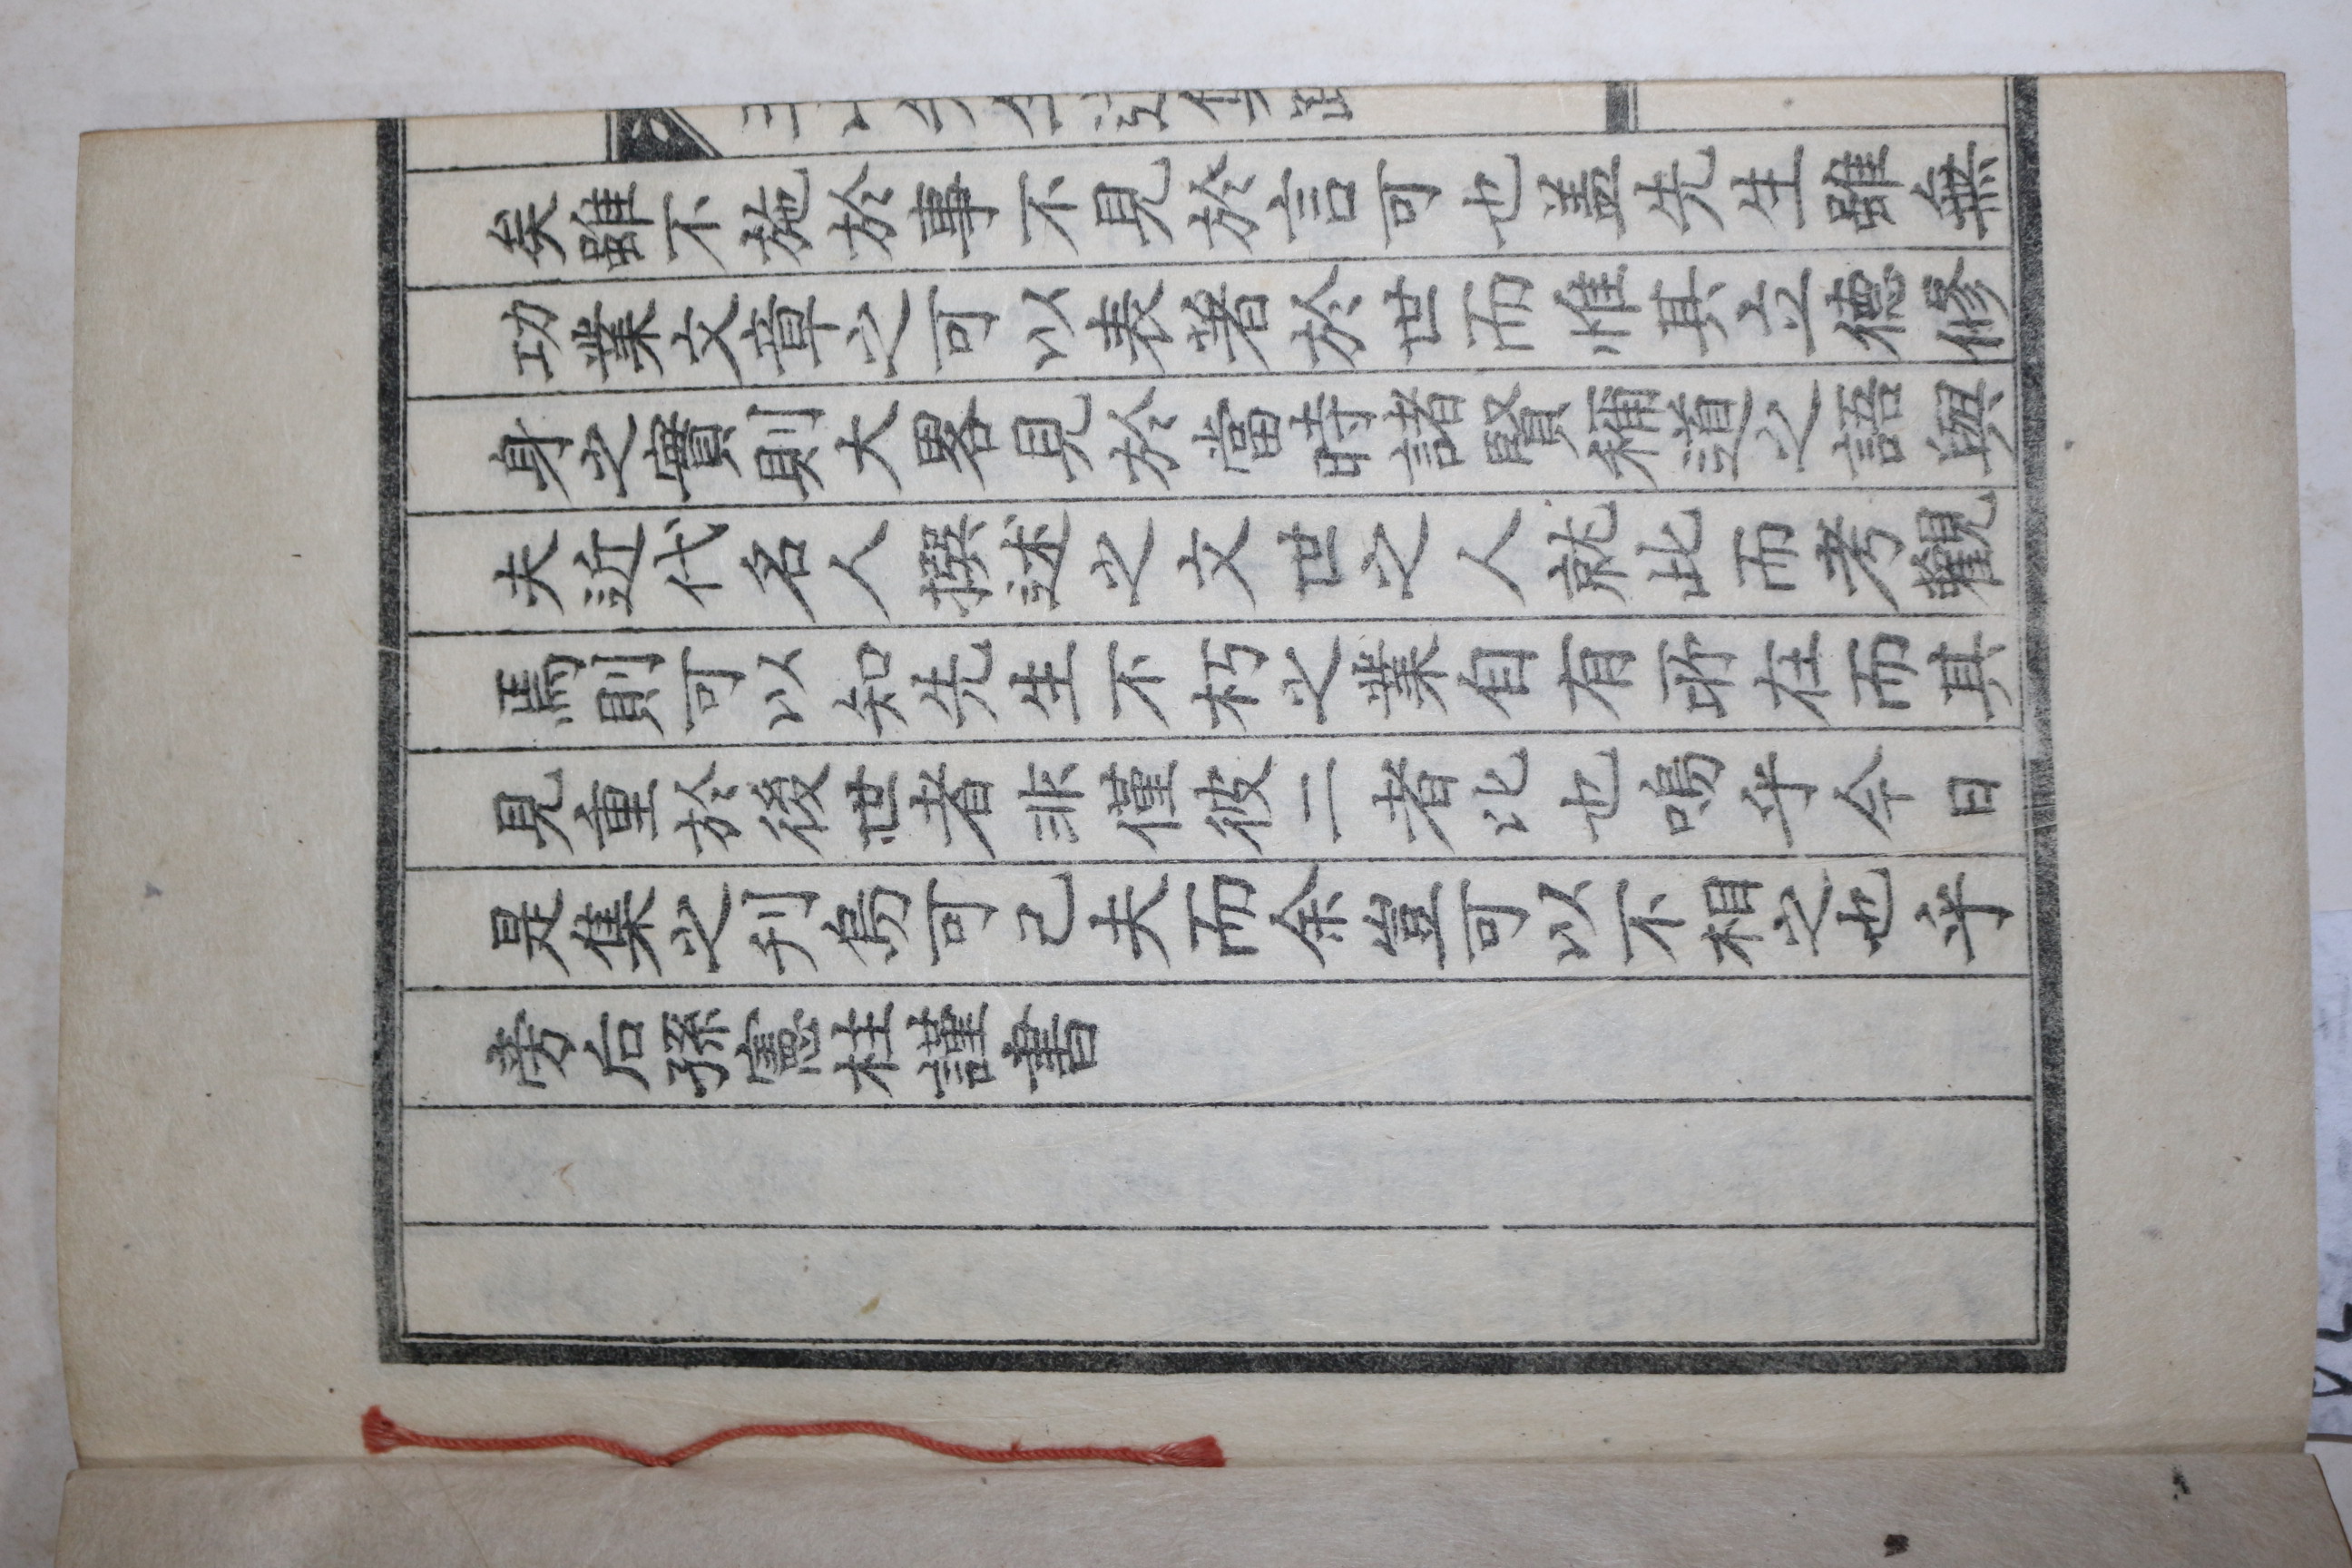 矣雖不施於事不見於言可也盖先生雖無
功業文章之可以表著於世而惟其立德修
身之實則大畧見於當時諸賢稱道之語與
夫近代名人撰述之文世之人就此而考觀
焉則可以知先生不朽之業自有所在而其
見重於後世者非僅彼二者比也嗚乎今日
是集之刊烏可已夫而余豈可以不相之也乎
旁后孫憲柱謹書